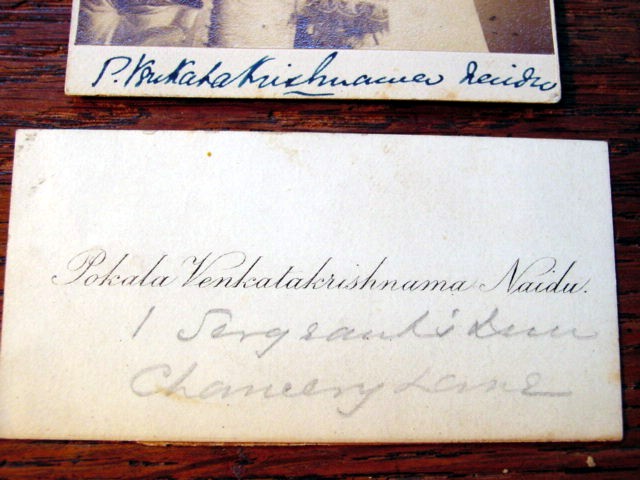 P. Venkatakrishnama Naidu
Pokala Venkatakrishnama Naidu.
1 Sergeant's Inn
Chancery Lane